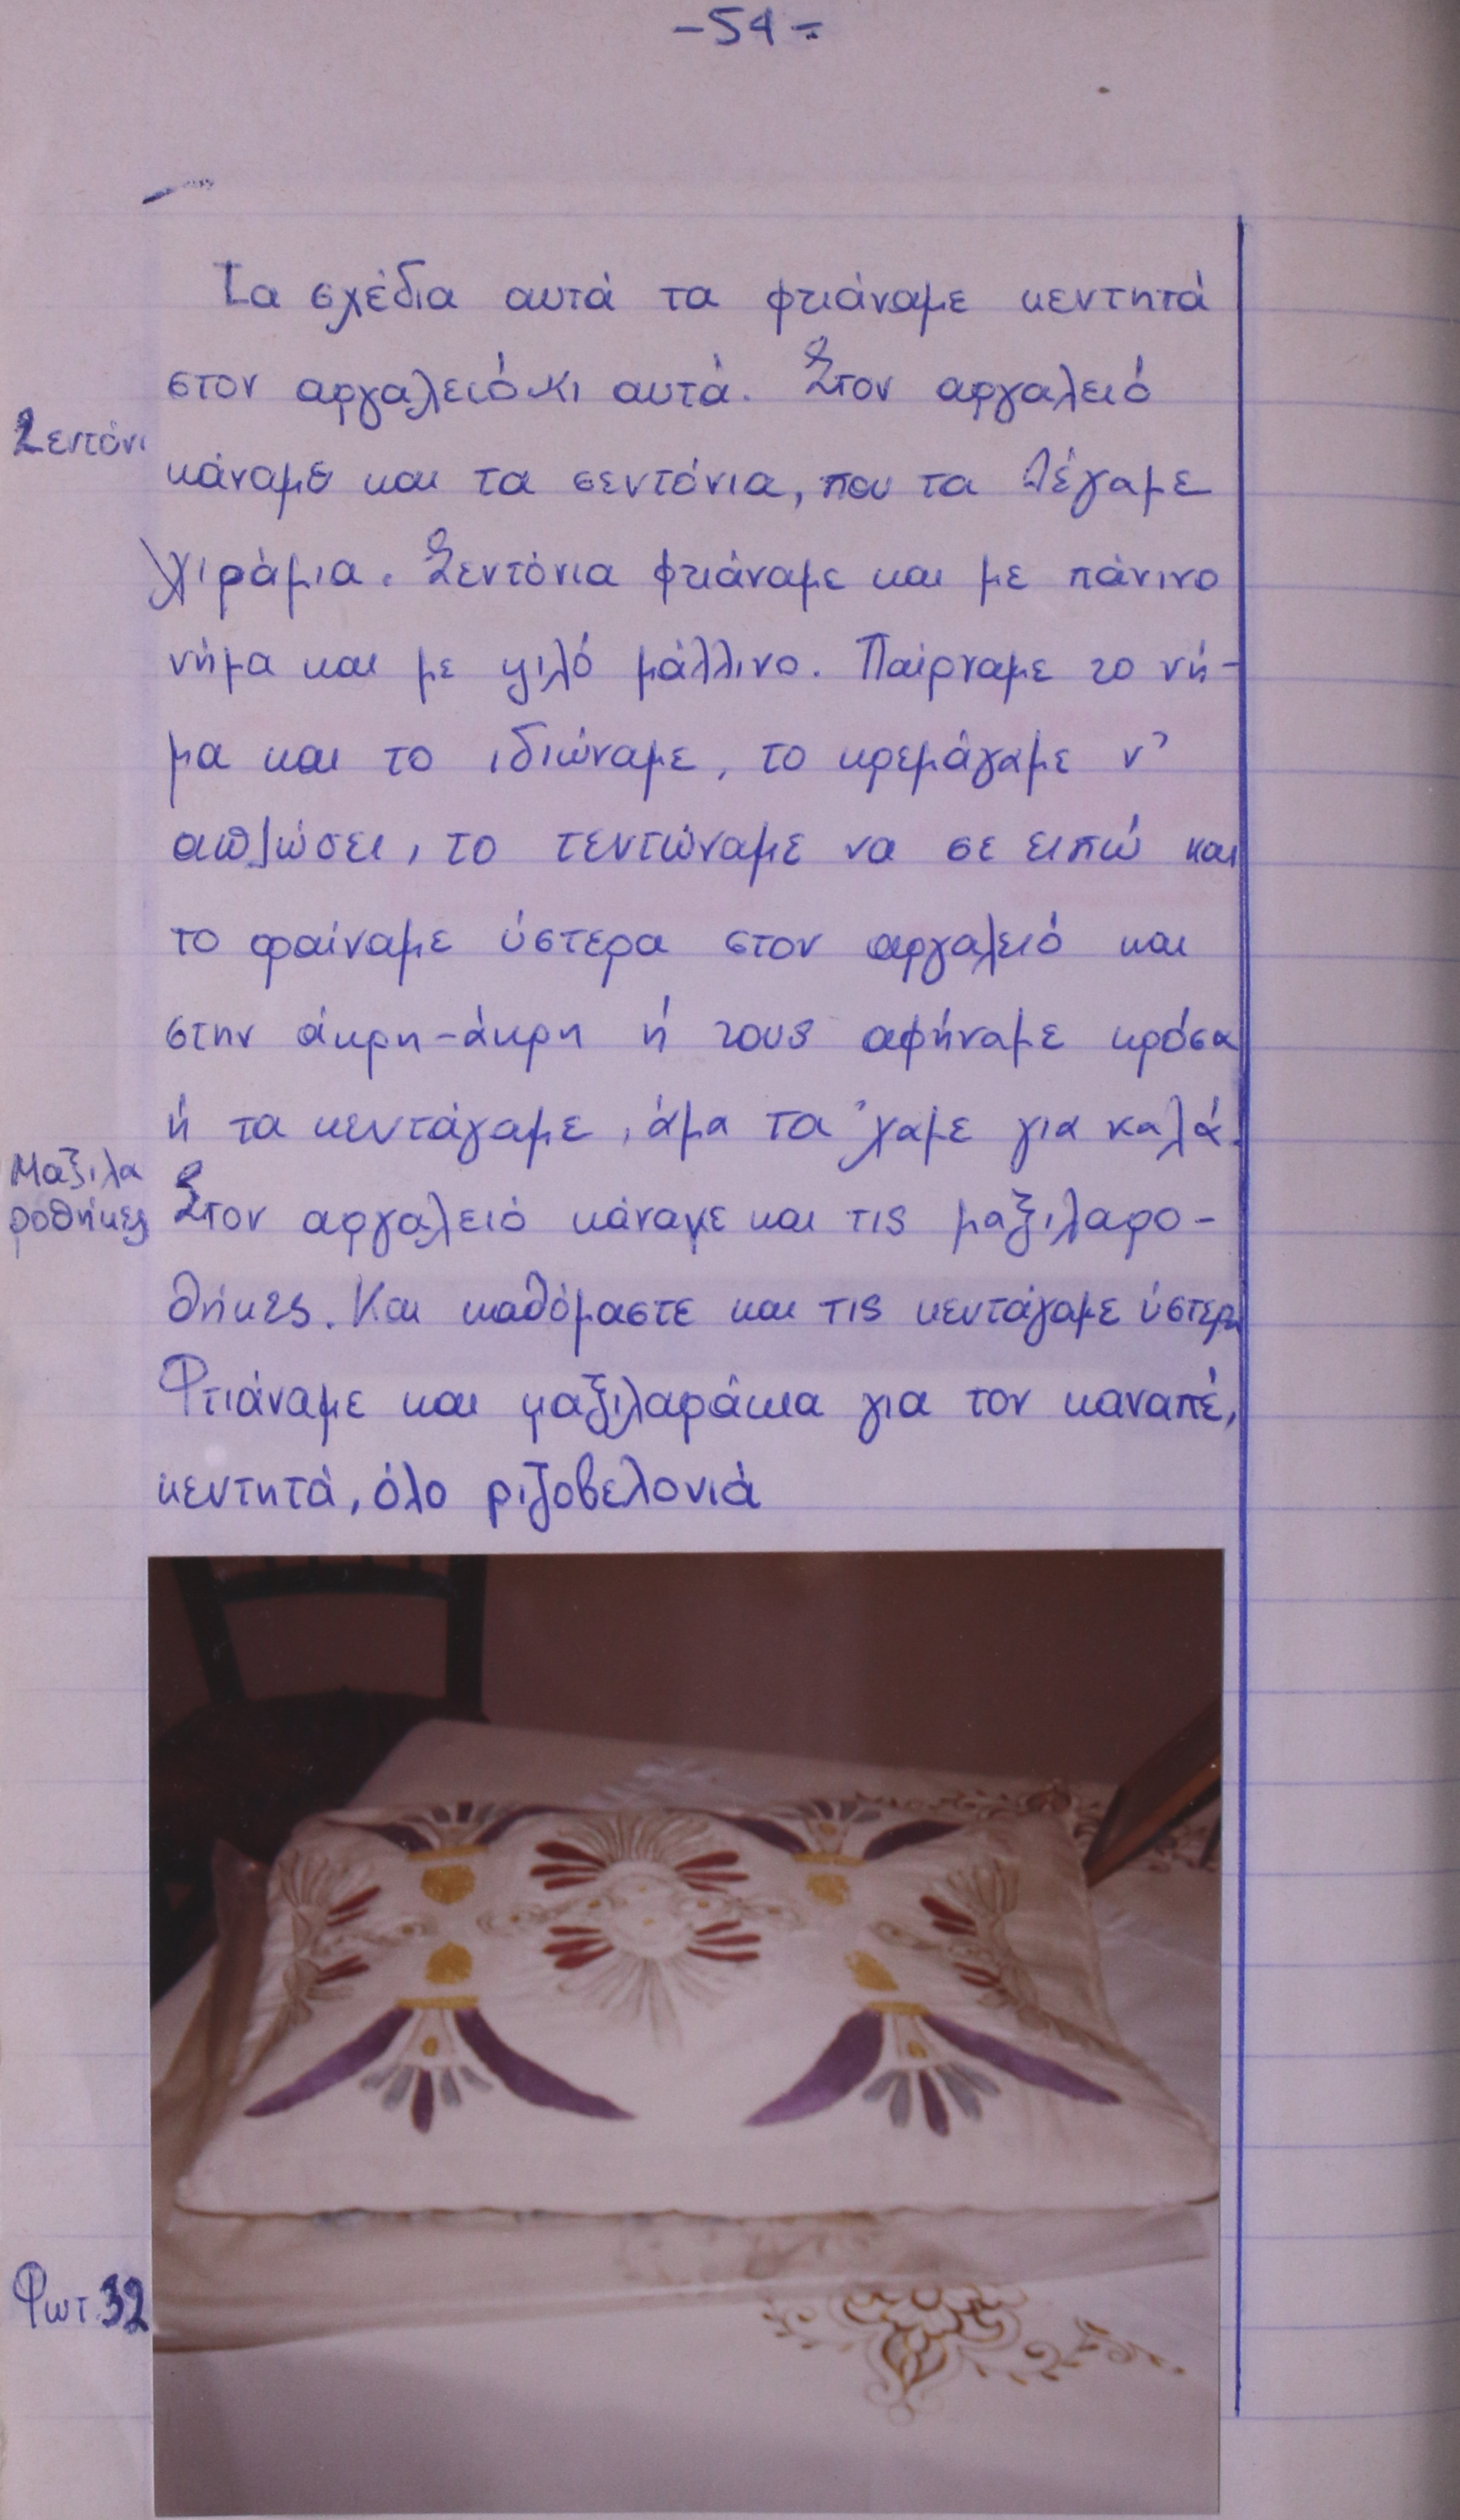 -54-
Τα σχέδια αυτά τα φτιάναμε κεντητά
στον αργαλειό κι αυτά. Στον αργαλειό
Σεντόνι
κάναμε και τα σεντόνια, που τα λέγαμε
χιράμια. Σεντόνια φτιάναμε και με πάνινο
νήμα και με ψιλό μάλλινο. Παίρναμε το νή-
μα και το ιδιώναμε, το κρεμάγαμε ν'
απλώσει, το τεντώναμε να σε ειπώ και
το φαίναμε ύστερα στον αργαλειό και
στην άκρη-άκρη ή τους αφήναμε κρόσα
ή τα κεντάγαμε, άμα τα 'χαμε για καλά.
Μαξιλα
ροθήκες
Στον αργαλειό κάναμε και τις μαξιλαρο-
θήκες. Και καθόμαστε και τις κεντάγαμε ύστερα
Φτιάναμε και μαξιλαράκια για τον καναπέ,
κεντητά, όλο ριζοβελονιά
Φωτ 32